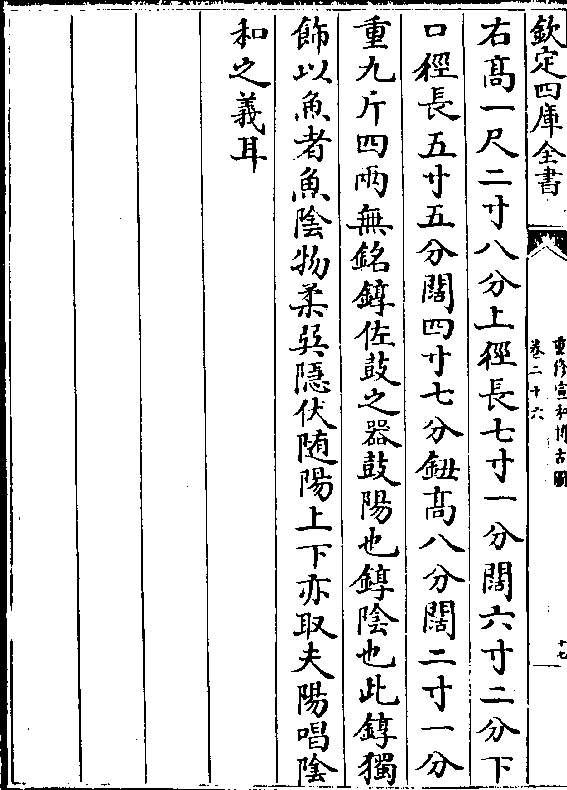 欽定四庫全書
重修宣和博古圖
卷二十六
十七
右髙一尺二寸八分上徑長七寸一分闊六寸二分下
口徑長五寸五分闊四寸七分鈕髙八分闊二寸一分
重九斤四兩無銘錞佐鼓之器鼓陽也錞陰也此錞獨
飾以魚者魚陰物柔巽隱伏随陽上下亦取夫陽唱陰
和之義耳